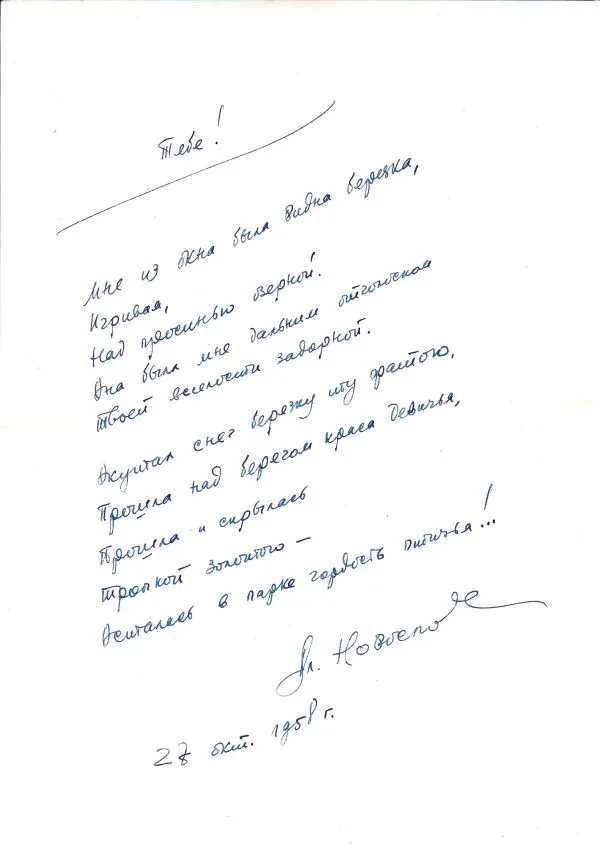 Тебе!
Мне из окна была видна березка,
Игривая,
Над просинью озерной!
Она была мне дальним отголоском
Твоей веселости задорной.
Окутал снег березку эту фатою,
Прошла над берегом краса девичья,
Прошла и скрылась
Тропкой золотою —
Осталась в парке гордость птичья...!
Вл.
27 окт. 1958 г.